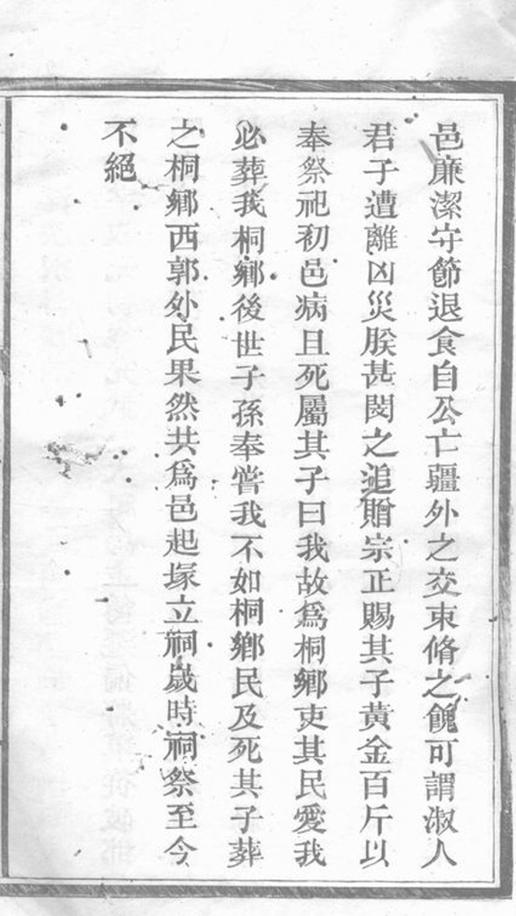 邑廉潔守節退食自公亡疆外之交束脩之餽可謂淑人
君子遭離凶災朕甚閔之追贈宗正賜其子黃金百斤以
奉祭祀初邑病且死屬其子曰我故爲桐鄉吏其民愛我
必葬我桐鄉後世子孫奉嘗我不如桐鄉民及死其子葬
之桐鄉西郭外民果然共爲邑起塚立祠歲時祠祭至今
不絕